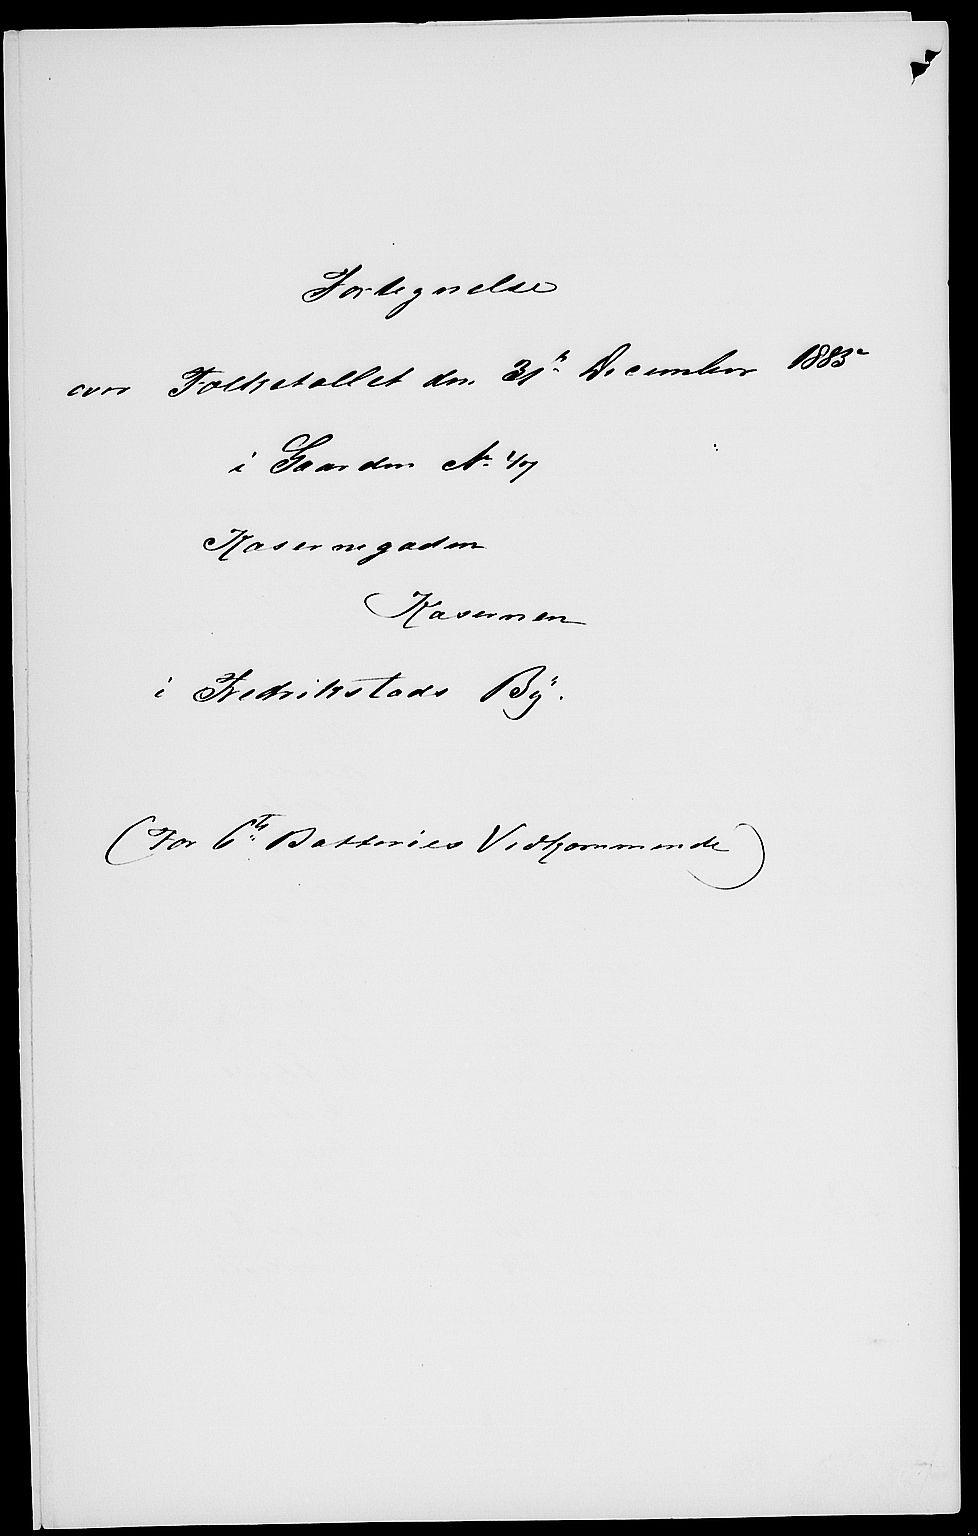 Fortegnelse
over Folketallet den 31te December 1885
i Gaarden No 1/7
Kasernegaden
Kasernen
i Fredrikstads By.
(For 6te Batteries Vedkommende)